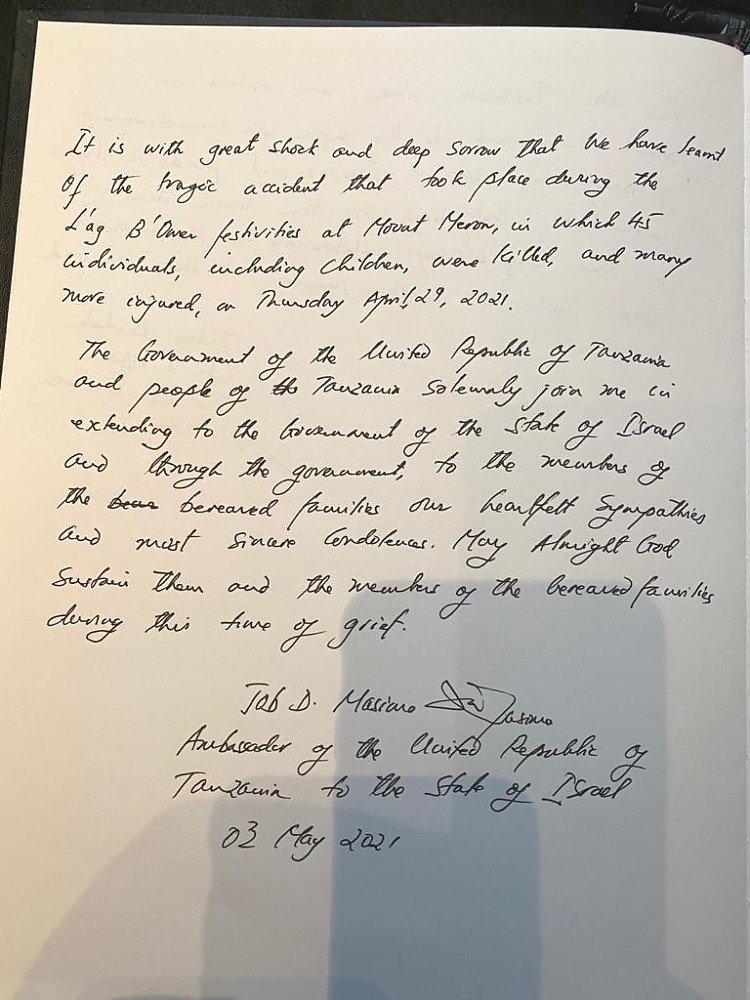 It is with great shock and deep sorrow that we have learnt
of the tragic accident that took place during the
L'ag B'Omer festivities at Mount Meron, in which 45
individuals, including children, were killed, and many
more injured, on Thursday April, 29, 2021.
The Government of the United Republic of Tanzania
and people of th Tanzania solemnly join me in
extending to the Government of the State of Israel
and through the government, to the members of
the bereaved families our heartfelt sympathies
and most sincere condolences. May Almight God
sustain them and the members of the bereaved families
during this time of grief.
Job D. Masima
Ambassador of the United Republic of
Tanzania to the State of Israel
03 May 2021